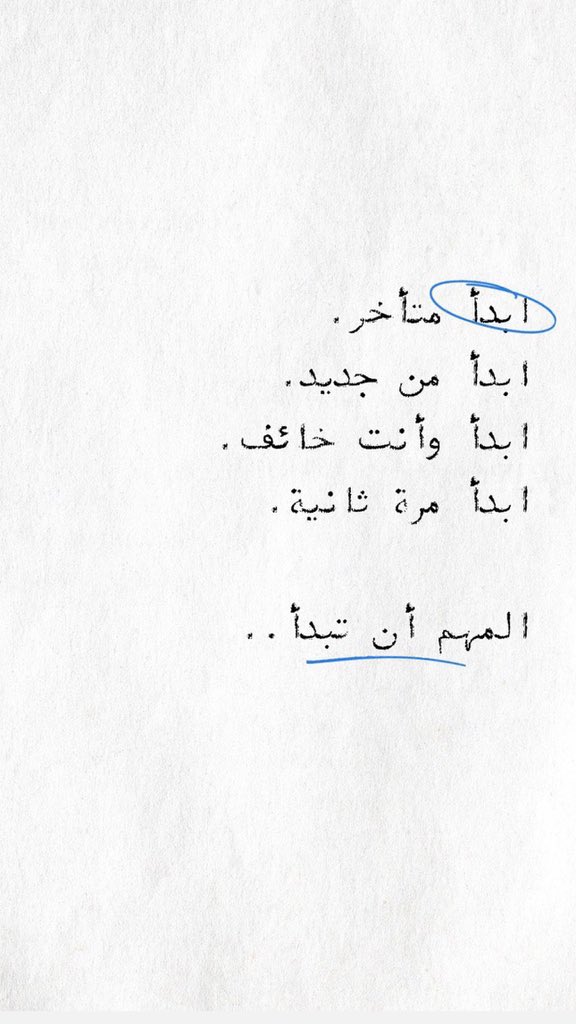 ابدأ متأخر.
ابدأ من جديد.
ابدأ وأنت خائف.
ابدأ مرة ثانية.
المهم أن تبدأ..